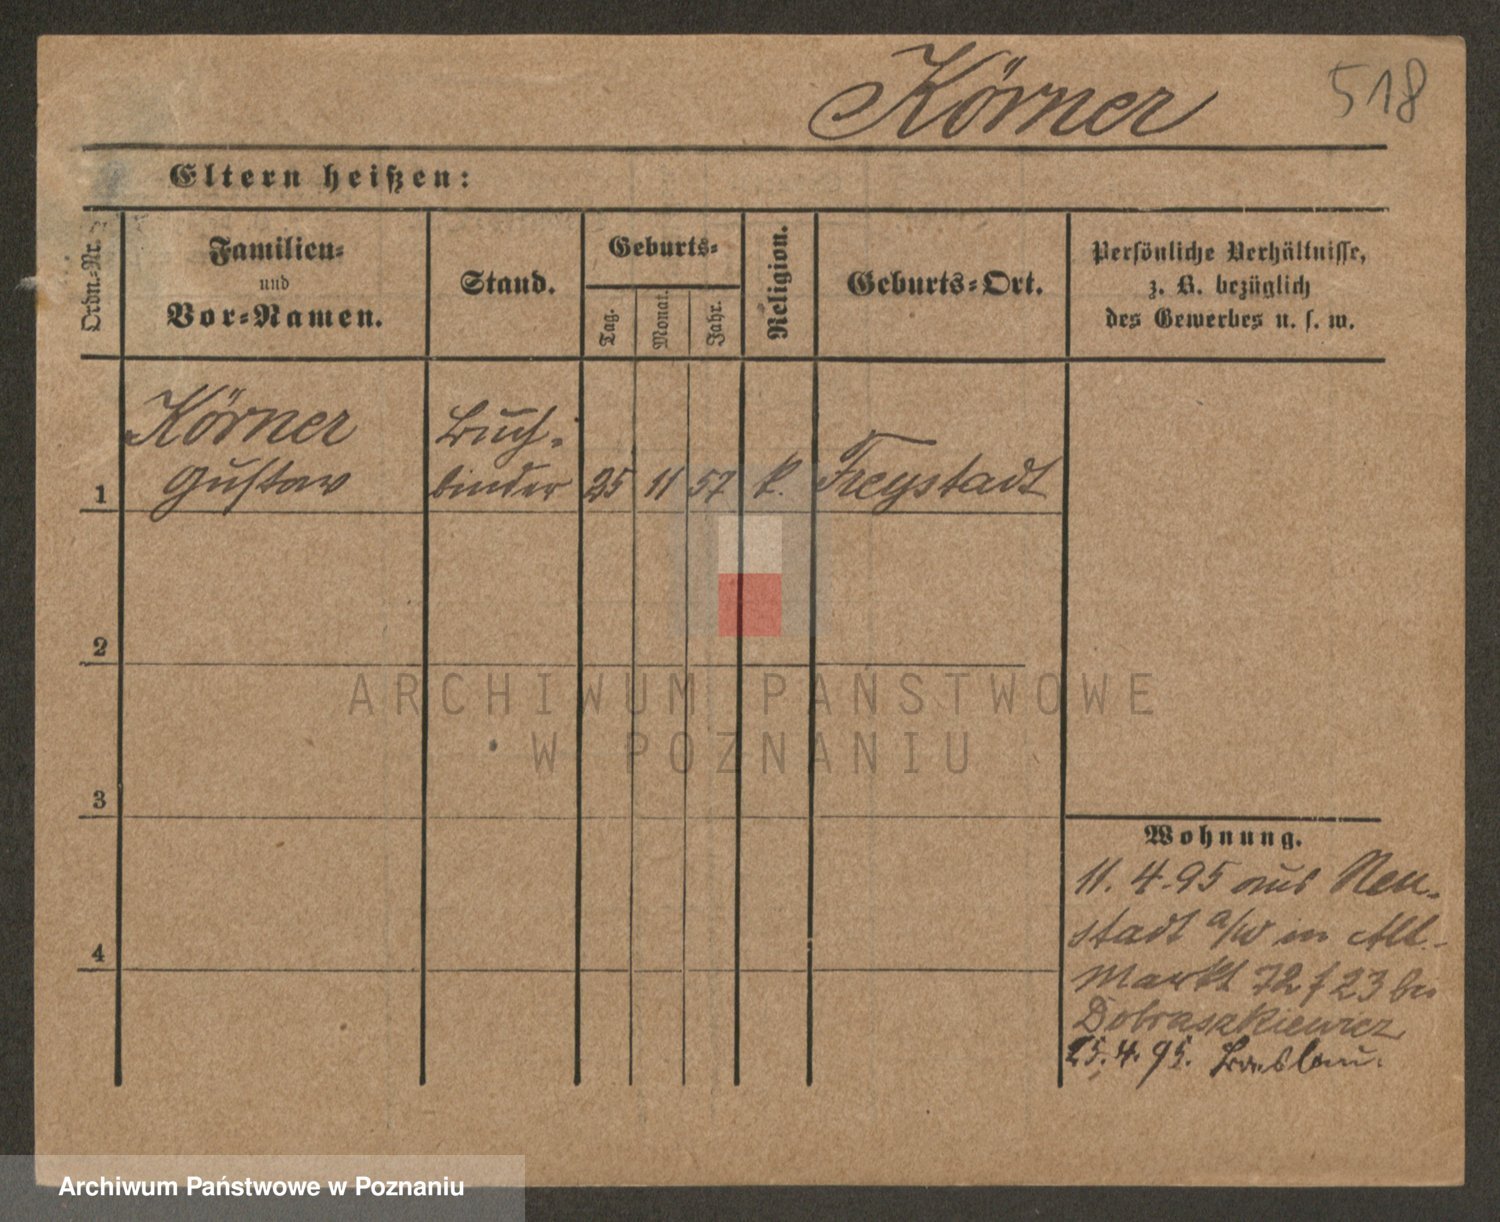 Körner 518
Eltern heißen:
Ordn.-Nr.
Familien-
und
Vor-Namen.
Stand.
Geburts-
Tag.
Monat.
Jahr.
Religion.
Geburts-Ort.
Persönliche Verhältnisse,
z. B. bezüglich
des Gewerbes u. s. w.
Körner
Gustav
Buch-
binder
1
25 11 57 k. Freystadt
2
3
4
Wohnung.
11. 4. 95 aus Neu-
stadt a/W in Alt-
Markt 72 f 23 bei
Dobraszkiewicz
25. 4. 95. Breslau.
ARCHIWUM PAŃSTWOWE
W POZNANIU
Archiwum Państwowe w Poznaniu